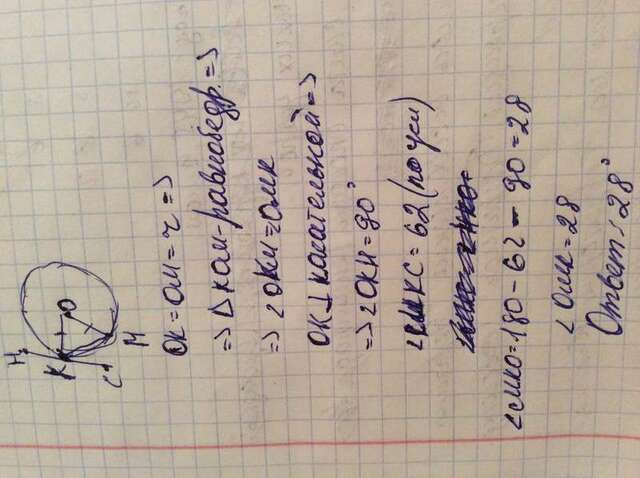 H
K
O
C
M
OK=OM=r=>
=> Δ КОМ-равнобедр.=>
=> ∠OKM=OMK
OK⊥касательной=>
=> ∠OKH=90°
∠MKC=62 (по усл)
∠MKO=180-62-90=28
∠OMK=28
Ответ: 28°